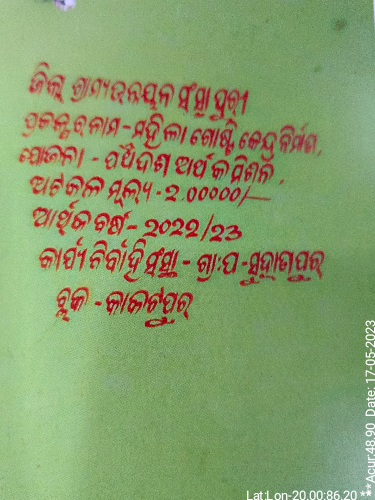 ଜିଲ୍ଲା ଗ୍ରାମ୍ୟଉନ୍ନୟନ ସଂସ୍ଥା ପୁରୀ
ପ୍ରକଳ୍ପର ନାମ - ମହିଳା ଗୋଷ୍ଠି କେନ୍ଦ୍ର ନିର୍ମାଣ,
ଯୋଜନା - ପଞ୍ଚଦଶ ଅର୍ଥ କମିଶନ,
ଅଟକଳ ମୂଲ୍ୟ - 2.00000/-
ଆର୍ଥିକ ବର୍ଷ - 2022/23
କାର୍ଯ୍ୟ ନିର୍ବାହି ସଂସ୍ଥା - ଗ୍ରା:ପ -
ବ୍ଲକ - କାକଟପୁର
Lat:Lon-20.00:86.20 ***Acur:48.90 Date: 17-05-2023